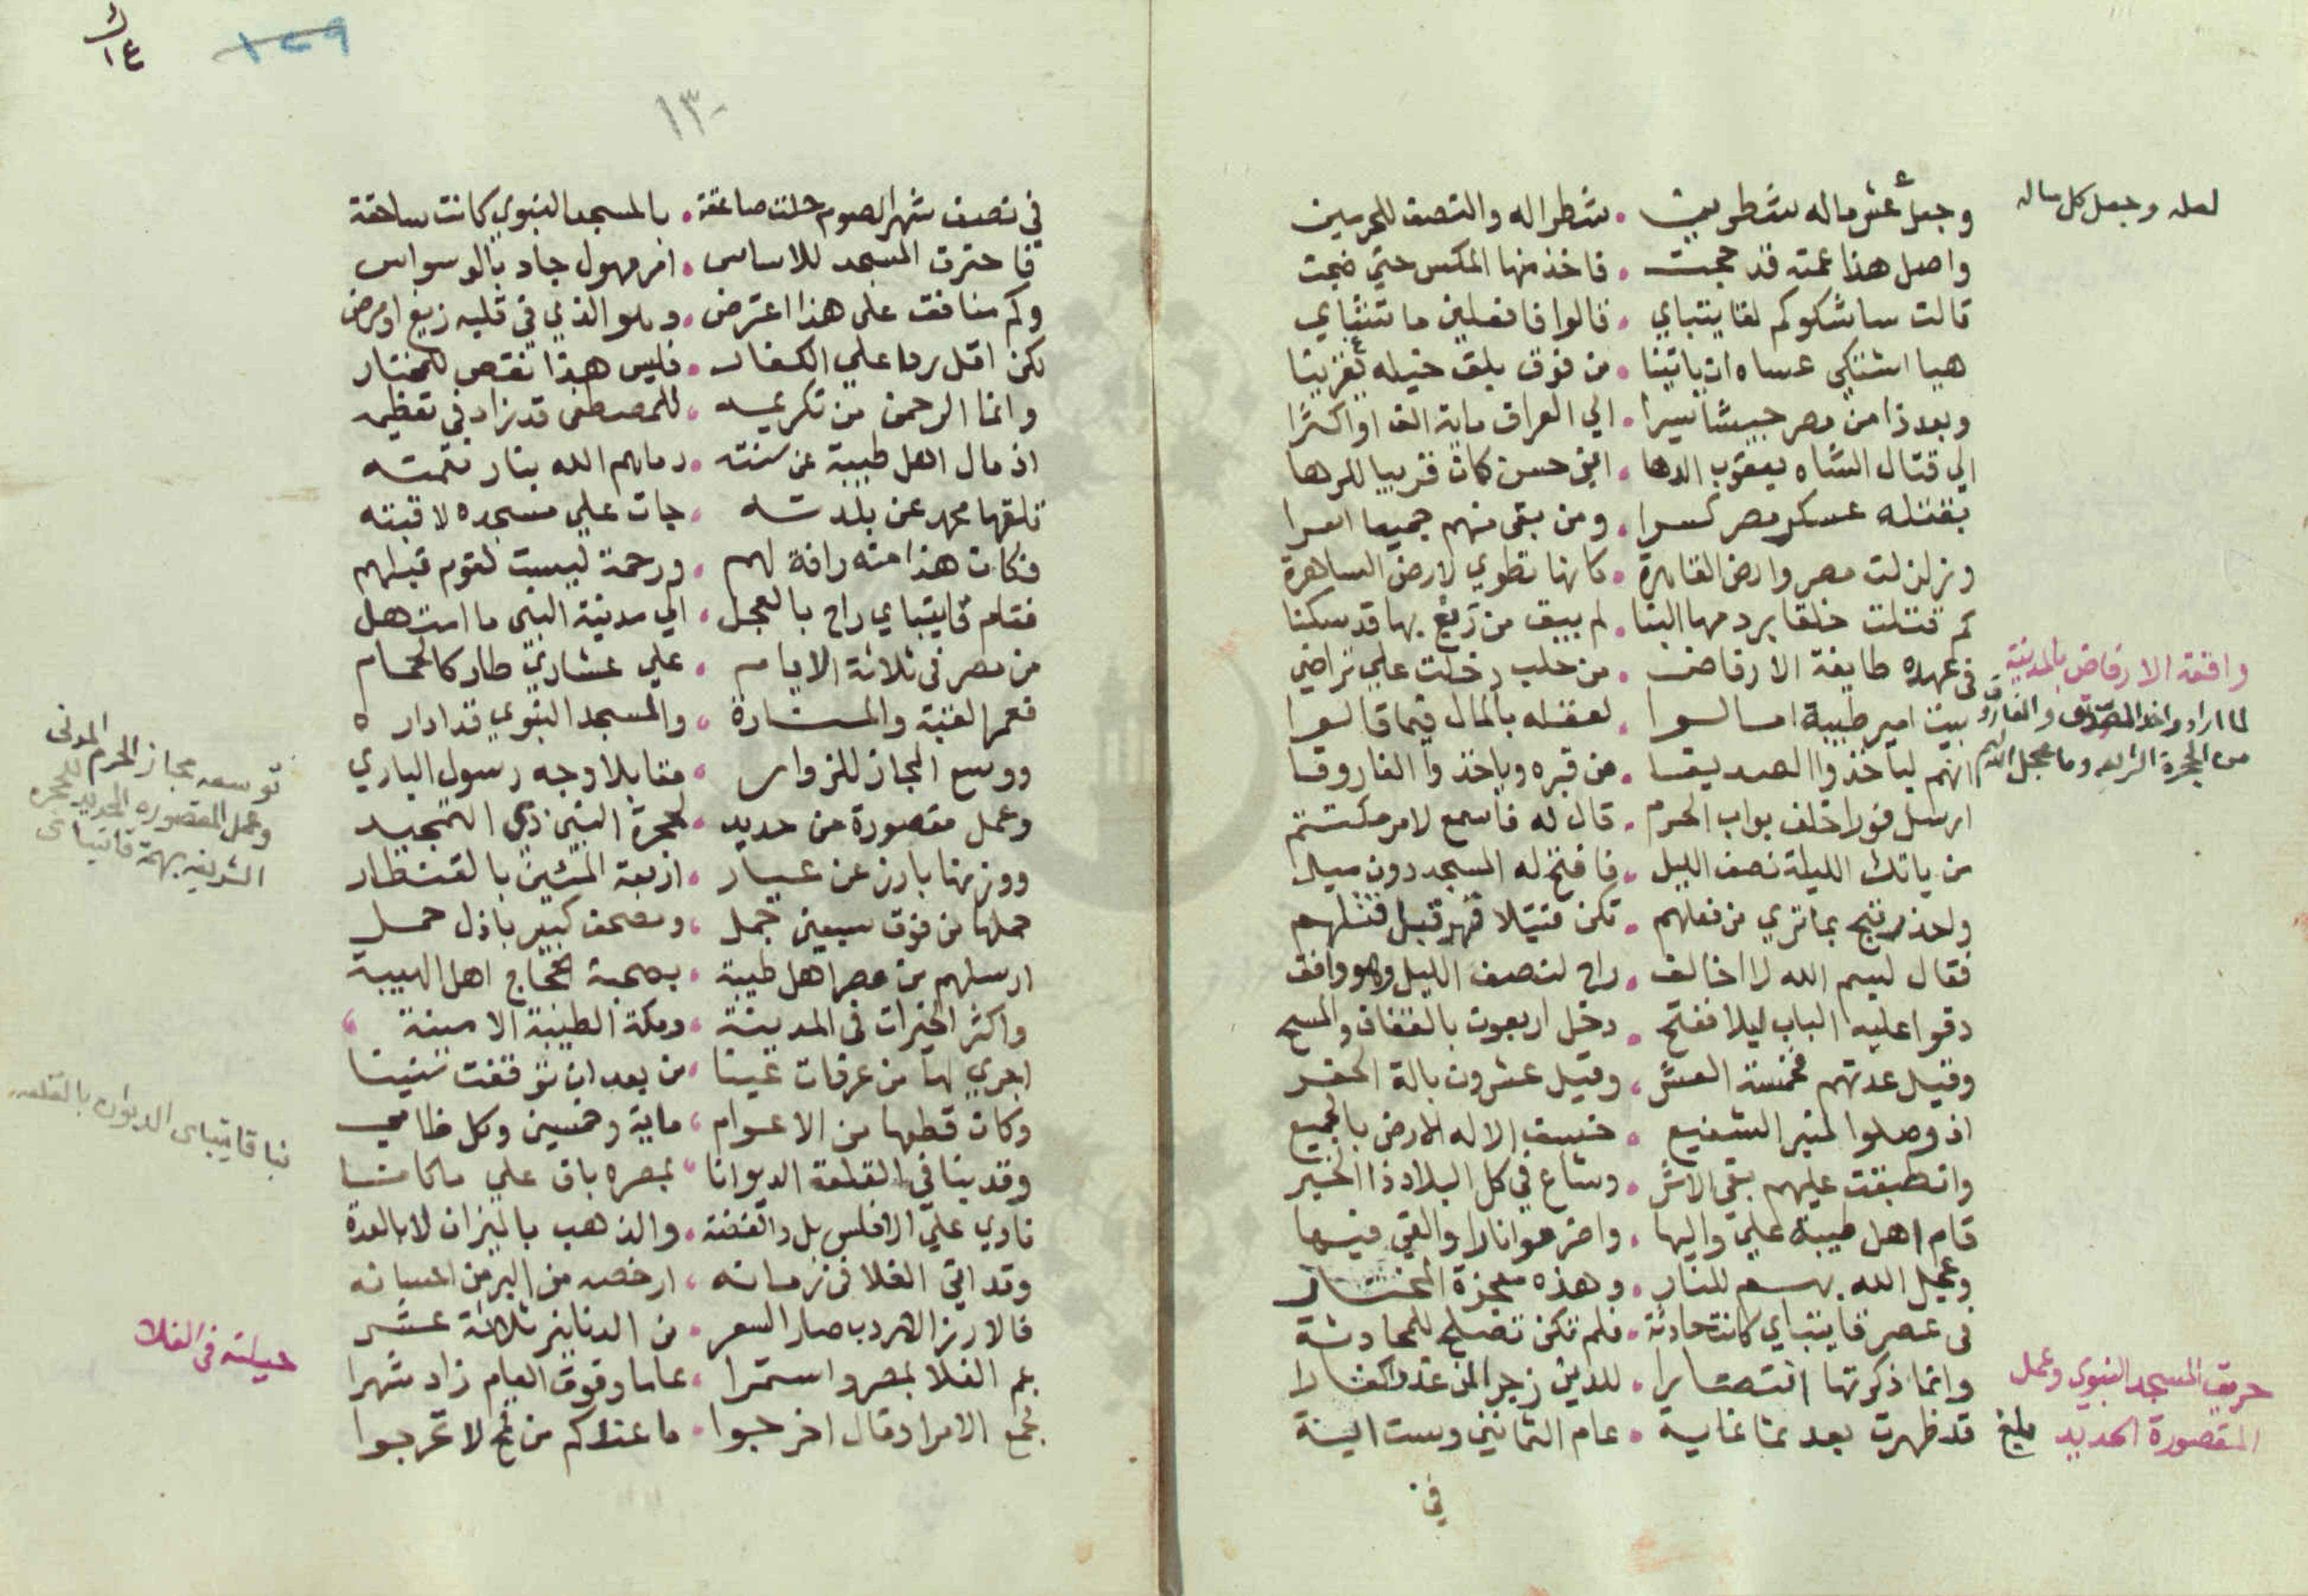 وجعل عشر ماله شطرين . شطرا له والنصف للحرمين
لعله وجعل كل ماله
واصل هذا عمته قد حجت . فاخذ منها المكس حتى ضجت
قالت ساشكوكم لقايتباي . قالوا فافعلين ما تشاي
هيا اشتكي عساه ان ياتينا . من فوق بلق خيله
وبعد ذا من مصر جيشا سيرا . الي العراق ماية الف او اكثرا
الي قتال الشاه يعقوب الدها . ابن حسن كان قريبا للرها
بقتله عسكر مصر كسرا . ومن بقى منهم جميعا اسرا
وزلزلت مصر وارض القاهرة . كانها تطوي لارض الساهرة
كم قتلت خلقا بردمها البنا . لم يبق من ربع بها قد سكنا
في عهده طايفة الارفاض . من حلب دخلت علي تراضي
وافقة الارفاض بالمدينة
لما ارادوا اخذ الصديق والفاروق
من الحجرة الشريفه وما عجل الله لهم
بيت امير طيبة امالوا . لعقله بالمال فيما قالوا
انهم لياخذوا الصديقا . من قبره وياخذوا الفاروقا
ارسل فورا خلف بواب الحرم . قال له فاسمع لامر مكتتم
من ياتك الليلة نصف الليل . فافتح له المسجد دون ميل
ولحذر تبح بما تري من فعلهم . تكن قتيلا قبل قتلهم
فقال لبسم الله لا اخالف . راح لنصف الليل وهو واقف
دقوا عليه الباب ليلا ففتح . دخل اربعون بالقفاف والمسح
وقيل عدتهم خمسة العشر . وقيل عشرون بالة الحفر
اذ وصلوا لمنبر الشفيع . خسف الاله الارض بالجميع
وانطبقت عليهم بقي الاثر . وشاع في كل البلاد ذا الخبر
قام اهل طيبة علي واليها . واضرموا نارا والقي فيها
وعجل الله بهم للنار . وهذه معجزة المختار
في عصر قايتباي كانت حادثة . فلم تكن تصلح للمحادثة
وانما ذكرتها انتصارا . للدين زجرا لمن غدوا كفارا
حريق المسجد النبوي وعمل
المقصورة الحديد
قد ظهرت بعد ثمانماية . عام الثمانين وست اتية
بلغ
في
١٤
١٢٩
١٣٠
في نصف شهر الصوم حلت صاعقة . بالمسجد النبوي كانت ساحقة
فاحترق المسجد للاساس . امر مهول جاد بالوسواس
وكم منافق على هذا اعترض . وهو الذي في قلبه زيغ او مرض
لكن اقل ردا علي الكفار . فليس هذا نقص للمختار
وانما الرحمن من تكريمه . للمصطفى قد زاد في تعظيمه
اذ مال اهل طيبة عن سنته . رماهم الله بنار نقمته
تلقها محمد عن بلدته . جات علي مسجده لا قبته
فكان هذا منه رافة لهم . ورحمة ليست لقوم قبلهم
فقام قايتباي راح بالعجل . الي مدينة النبي ما امتهل
من مصر في ثلاثة الايام . علي عشاري طار كالحمام
فعمر القبة والمنارة . والمسجد النبوي قد اداره
ووسع المجاز للزوار . مقابلا وجه رسول الباري
توسعه مجاز الحرم المدني
وعمل المقصوره الحديد للحجرة
الشريفه بهمة قايتباى
وعمل مقصورة من حديد . لحجرة النبي ذي التمجيد
ووزنها بارز عن عيار . اربعة المئين بالقنطار
حملها من فوق سبعين جمل . ومصحف كبير باذل حمل
ارسلهم من مصر اهل طيبة . بصحبة الحجاج اهل الهيبة
واكثر الخيرات في المدينة . ومكة الطيبة الامينة
اجري لها من عرفات عينا . من بعد ان توقفت سنينا
وكان قطعها من الاعوام . ماية وخمسين وكل ظامي
بنا قايتباى الديوان بالقلعه
وقد بنا في القلعة الديوانا . بمصره باق علي ما كانا
نادي علي الافلس بل والفضة . والذهب بالميزان لا بالعدة
وقد اتي الغلا في زمانه . ارخصه من البر من احسانه
فالارز الاردب صار السعر . من الدنانير ثلاثة عشر
حيلته في الغلا
عم الغلا بمصر واستمرا . عاما وفوق العام زاد شهرا
جمع الامرا وقال اخرجوا . ما عندكم من قمح لا تحرجوا